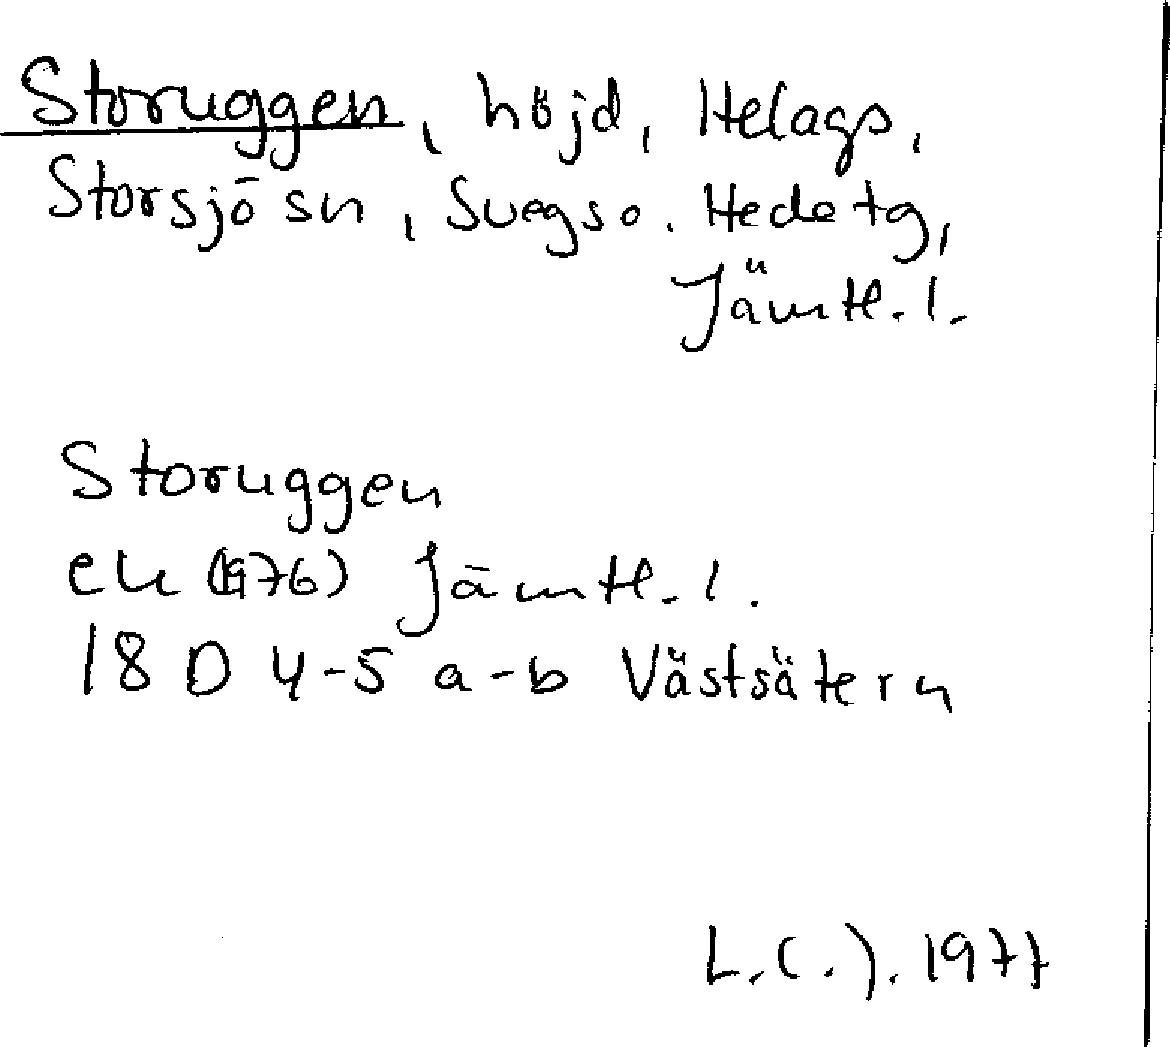 Storuggen, höjd, Helags,
Storsjö sn, Svegs o. Hede tg,
Jämtl. l.
Storuggen
ek (1976) Jämtl. l.
18 D 4-5 a-b Västsätern
L.C.J. 1977